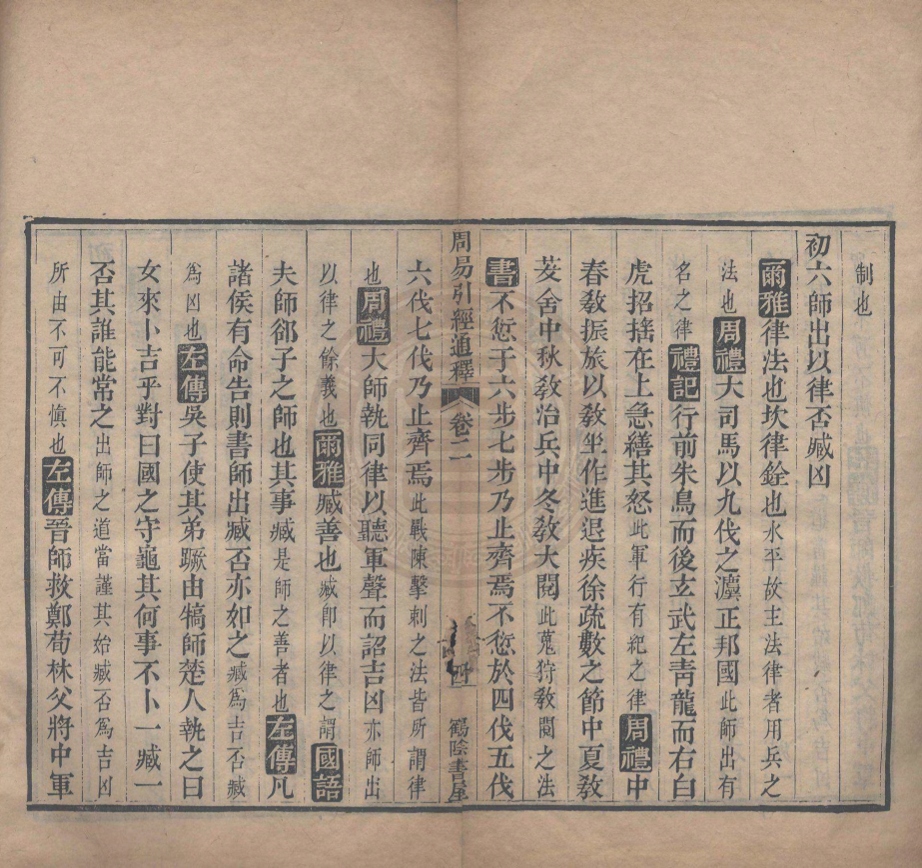 制也
初六師出以律否臧凶
爾雅律法也坎律銓也水平故主法律者用兵之
法也周禮大司馬以九伐之灋正邦國此師出有
名之律禮記行前朱鳥而後玄武左青龍而右白
虎招搖在上急繕其怒此軍行有紀之律周禮中
春敎振旅以敎坐作進退疾徐疏數之節中夏敎
茇舍中秋敎治兵中冬敎大閱此蒐狩敎閱之法
書不愆于六步七步乃止齊焉不愆於四伐五伐
周易引經通釋
卷二
鶴陰書屋
六伐七伐乃止齊焉此戰陳擊刺之法皆所謂律
也周禮大師執同律以聽軍聲而詔吉凶亦師出
以律之餘義也爾雅臧善也臧卽以律之謂國語
夫師郤子之師也其事臧是師之善者也左傳凡
諸侯有命告則書師出臧否亦如之臧爲吉否臧
爲凶也左傳吳子使其弟蹶由犒師楚人執之曰
女來卜吉乎對曰國之守龜其何事不卜一臧一
否其誰能常之出師之道當謹其始臧否爲吉凶
所由不可不愼也左傳晉師救鄭荀林父將中軍